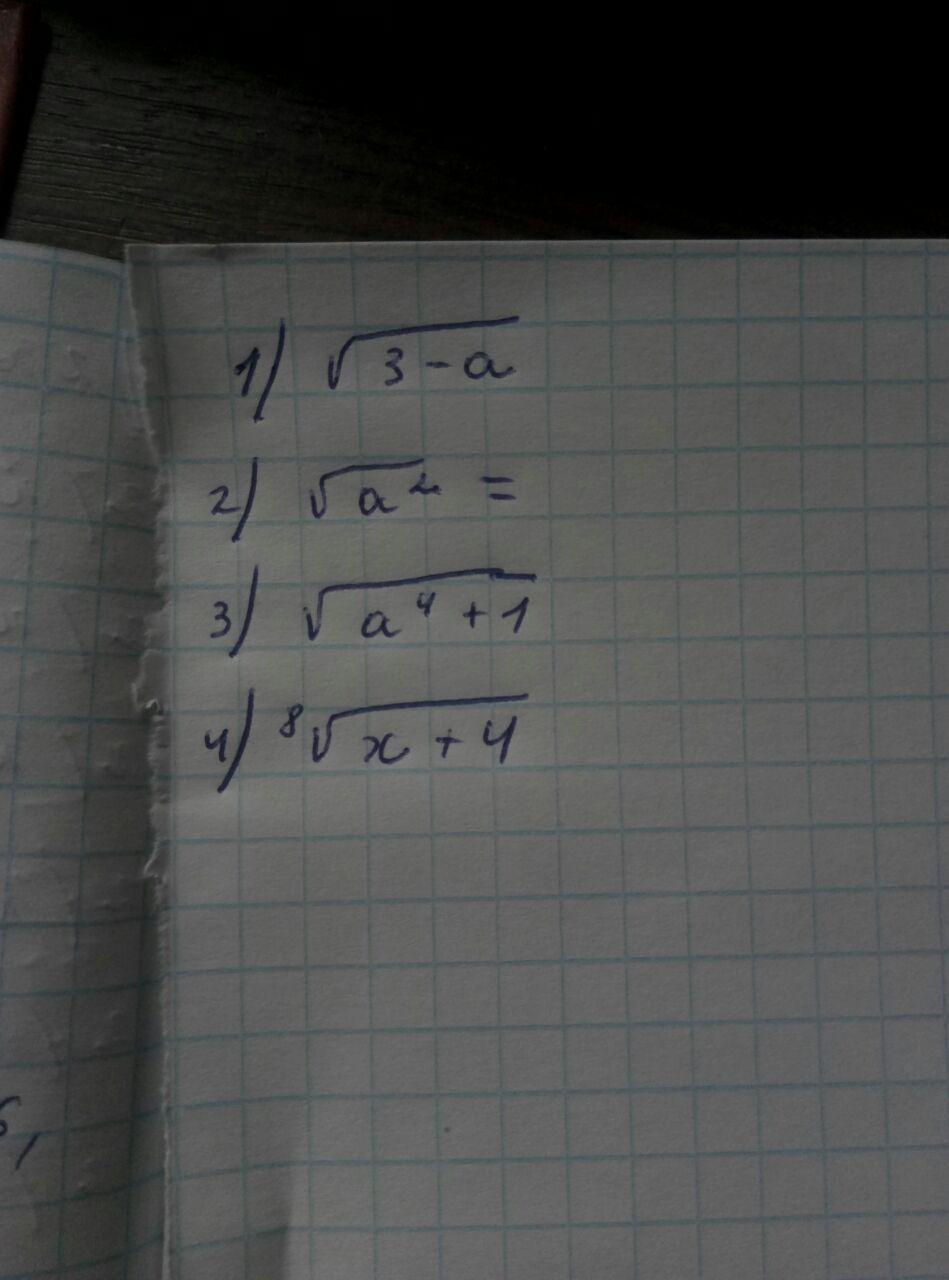 1) √3-a
2) √a² =
3) √a⁴+1
4) ⁸√x+4
6,